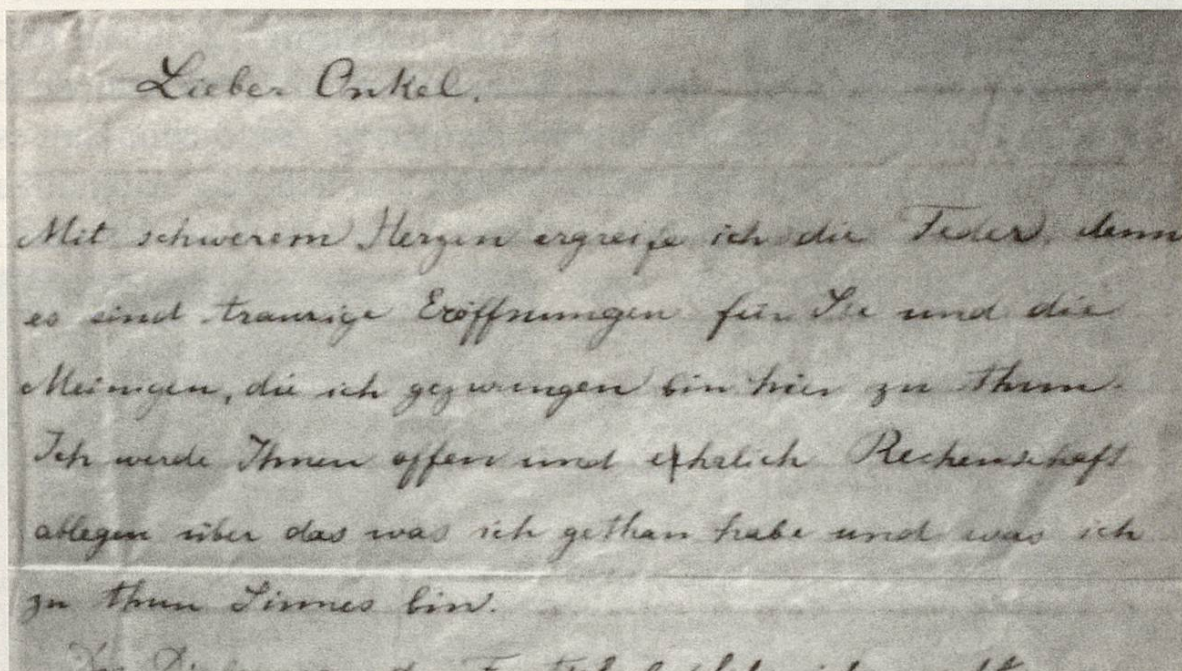 Lieber Onkel.
Mit schwerem Herzen ergreife ich die Feder, denn
es sind traurige Eröffnungen für Sie und die
Meinigen, die ich gezwungen bin hier zu thun.
Ich werde Ihnen offen und ehrlich Rechenschaft
ablegen über das was ich gethan habe und was ich
zu thun Sinnes bin.